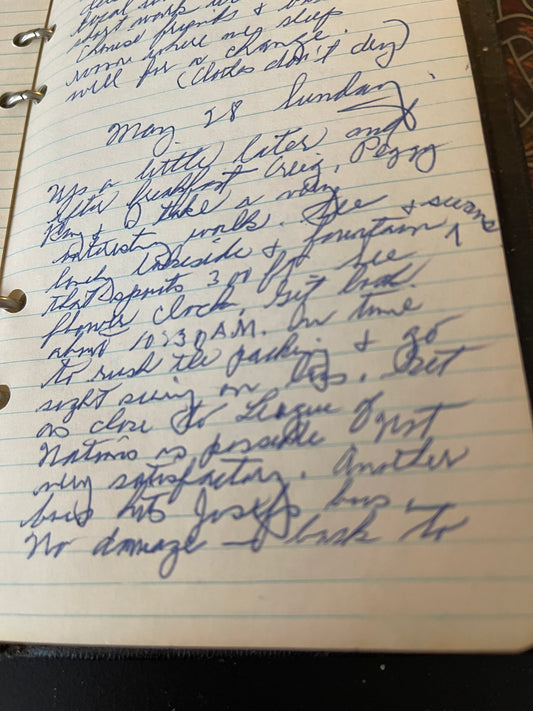 start work
Chinese friends &
room where we sleep
well for a change.
(Clothes don't dry)
May. 28 Sunday.
Up a little later and
after breakfast Creig, Peggy
Ray & I take a very
interesting walk. See
lovely lakeside & fountain & swans
that spouts 300 ft. See
flower clock. Get back
about 10:30 A.M. in time
to rush the packing & go
sight seeing on bus. Get
as close to League of
Nations as possible & not
very satisfactory. Another
bus hits Josef's bus -
No damage - back to